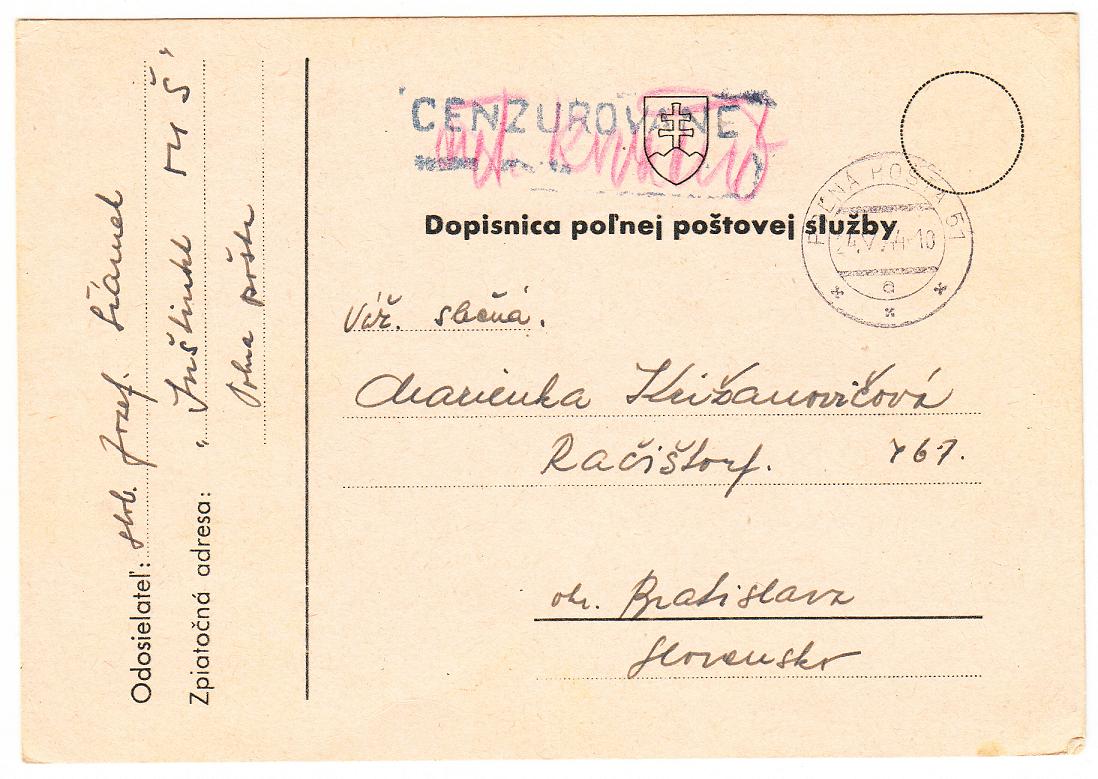 CENZUROVANÉ
Dopisnica poľnej poštovej služby
POĽNÁ POŠTA 51
24.V.44-10
a
Váž. slečná.
Marienka Križanovičová
Račištorf. 767.
okr. Bratislava
Slovensko
Odosielateľ: slob. Jozef.
Zpiatočná adresa: „Inštinkt 5"
Poľna pošta